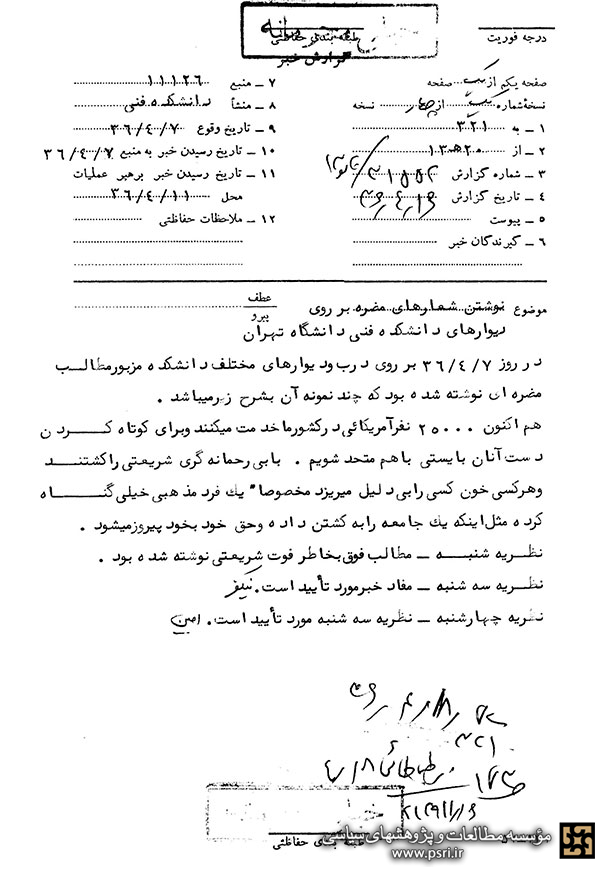 درجه فوریت
طبقه بندی حفاظتی
گزارش خبر
صفحه یکم از یک صفحه
نسخه شماره یک از چهار نسخه
۱ ـ به ۳۲۱
۲ ـ از ۲۰ هـ ۱۳
۳ ـ شماره گزارش
۴ ـ تاریخ گزارش
۵ ـ پیوست
۶ ـ گیرندگان خبر
۷ ـ منبع ۱۱۱۲۶
۸ ـ منشأ دانشکده فنی
۹ ـ تاریخ وقوع ۳۶/۴/۷
۱۰ ـ تاریخ رسیدن خبر به منبع ۳۶/۴/۷
۱۱ ـ تاریخ رسیدن خبر برهبر عملیات
محل ۳۶/۴/۱۱
۱۲ ـ ملاحظات حفاظتی
موضوع نوشتن شعارهای مضره بر روی
دیوارهای دانشکده فنی دانشگاه تهران
عطف
پیرو
در روز ۳۶/۴/۷ بر روی درب و دیوارهای مختلف دانشکده مزبور مطالب
مضره ای نوشته شده بود که چند نمونه آن بشرح زیر میباشد .
هم اکنون ۲۵۰۰۰ نفر آمریکائی در کشور ما خدمت میکنند و برای کوتاه کردن
دست آنان بایستی با هم متحد شویم . با بی رحمانه گری شریعتی را کشتند
و هر کسی خون کسی را بی دلیل میریزد مخصوصا" یك فرد مذهبی خیلی گناه
کرده مثل اینکه یك جامعه را به کشتن داده و حق خود بخود پیروز میشود .
نظریه شنبه ـ مطالب فوق بخاطر فوت شریعتی نوشته شده بود .
نظریه سه شنبه ـ مفاد خبر مورد تأیید است .
نظریه چهارشنبه ـ نظریه سه شنبه مورد تأیید است . امین
۳۲۱
طبقه بندی حفاظتی
مؤسسه مطالعات و پژوهشهای سیاسی
www.psri.ir